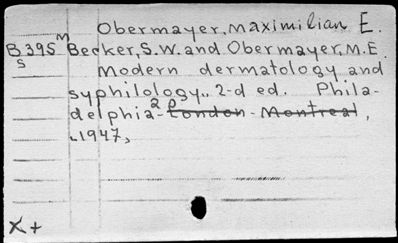 Obermayer, Maximilian E.
B395 m Becker, S.W. and Obermayer, M.E.
s Modern dermatology and
syphilology., 2-d ed. Phila-
delphia - London - Montreal,
1947,
X+